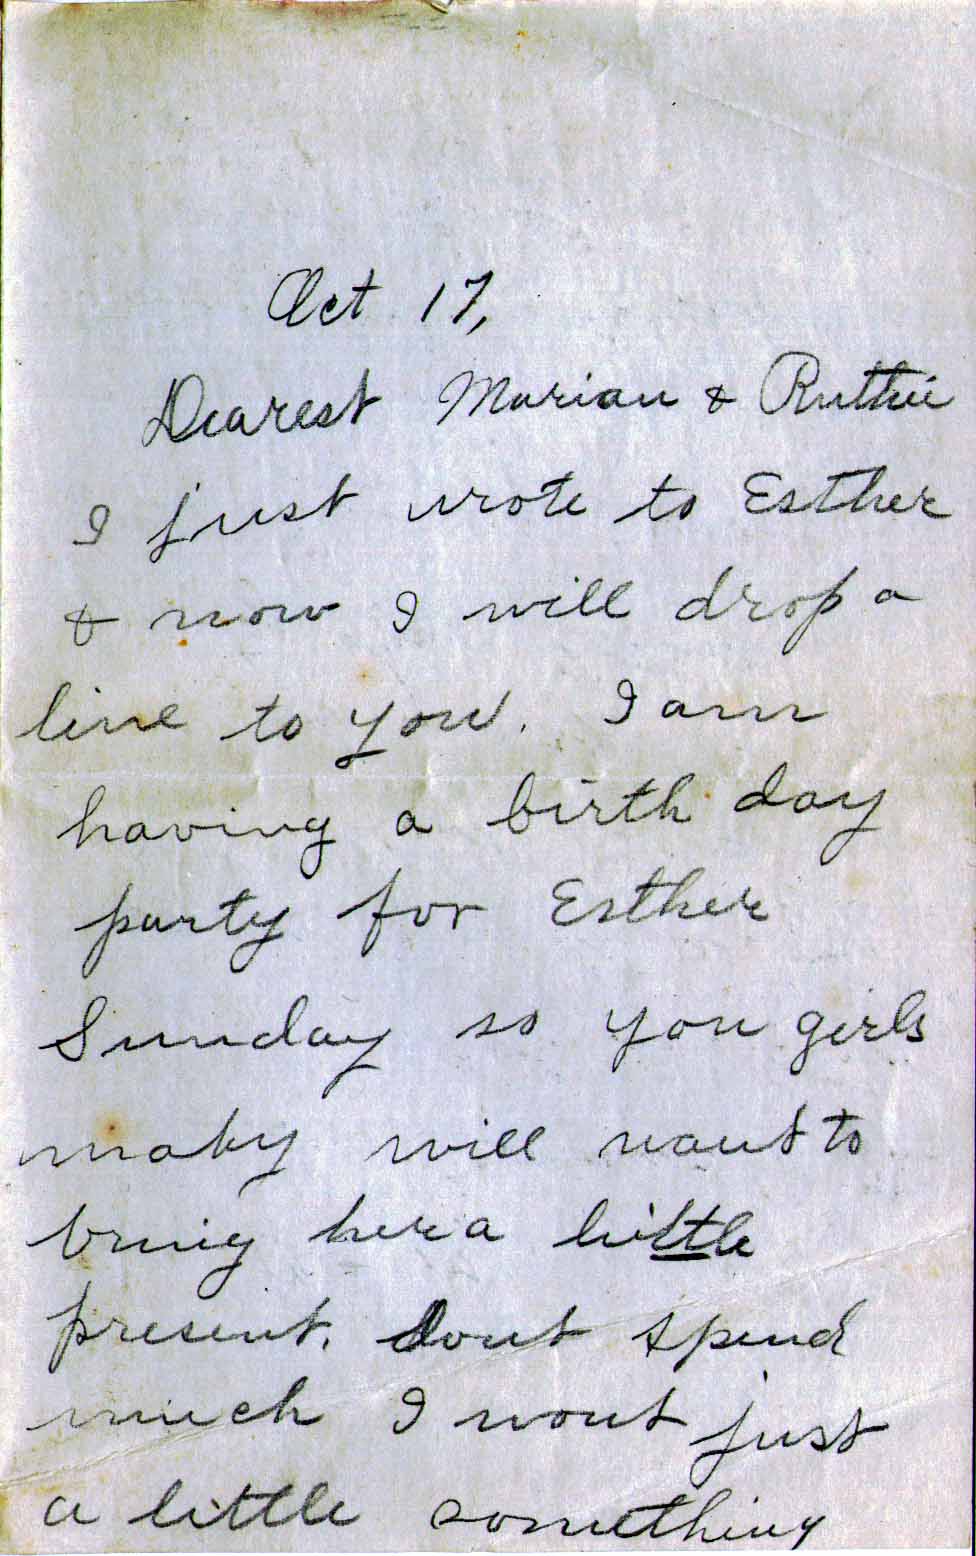 Oct 17,
Dearest Marian & Ruthie
I just wrote to Esther
& now I will drop a
line to you. I am
having a birth day
party for Esther
Sunday so you girls
maby will want to
bring her a little
present. Dont spend
much I wont just
a little something